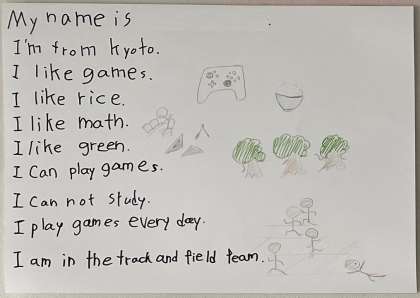 My name is
I'm from kyoto.
I like games.
I like rice.
I like math.
I like green.
I can play games.
I can not study.
I play games every day.
I am in the track and field team.